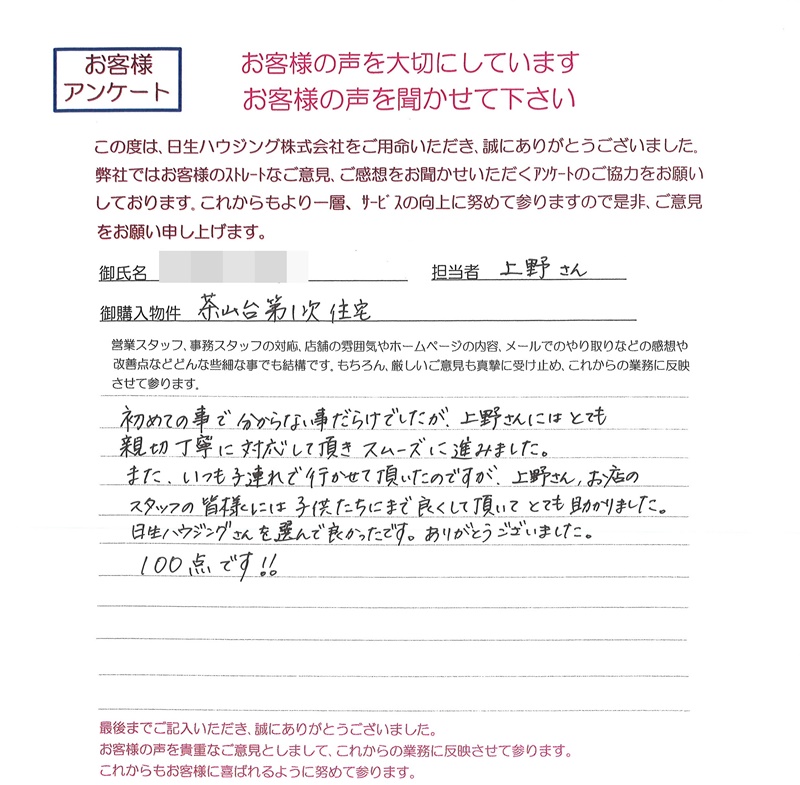 お客様
アンケート
お客様の声を大切にしています
お客様の声を聞かせて下さい
この度は、日生ハウジング株式会社をご用命いただき、誠にありがとうございました。
弊社ではお客様のｽﾄﾚｰﾄなご意見、ご感想をお聞かせいただくｱﾝｹｰﾄのご協力をお願い
しております。これからもより一層、ｻｰﾋﾞｽの向上に努めて参りますので是非、ご意見
をお願い申し上げます。
御氏名 担当者 上野さん
御購入物件 茶山台第1次住宅
営業スタッフ、事務スタッフの対応、店舗の雰囲気やホームページの内容、メールでのやり取りなどの感想や
改善点などどんな些細な事でも結構です。もちろん、厳しいご意見も真摯に受け止め、これからの業務に反映
させて参ります。
初めての事で分からない事だらけでしたが、上野さんにはとても
親切丁寧に対応して頂きスムーズに進みました。
また、いつも子連れで行かせて頂いたのですが、上野さん、お店の
スタッフの皆様には子供たちにまで良くして頂いてとても助かりました。
日生ハウジングさんを選んで良かったです。ありがとうございました。
100点です!!
最後までご記入いただき、誠にありがとうございました。
お客様の声を貴重なご意見としまして、これからの業務に反映させて参ります。
これからもお客様に喜ばれるように努めて参ります。